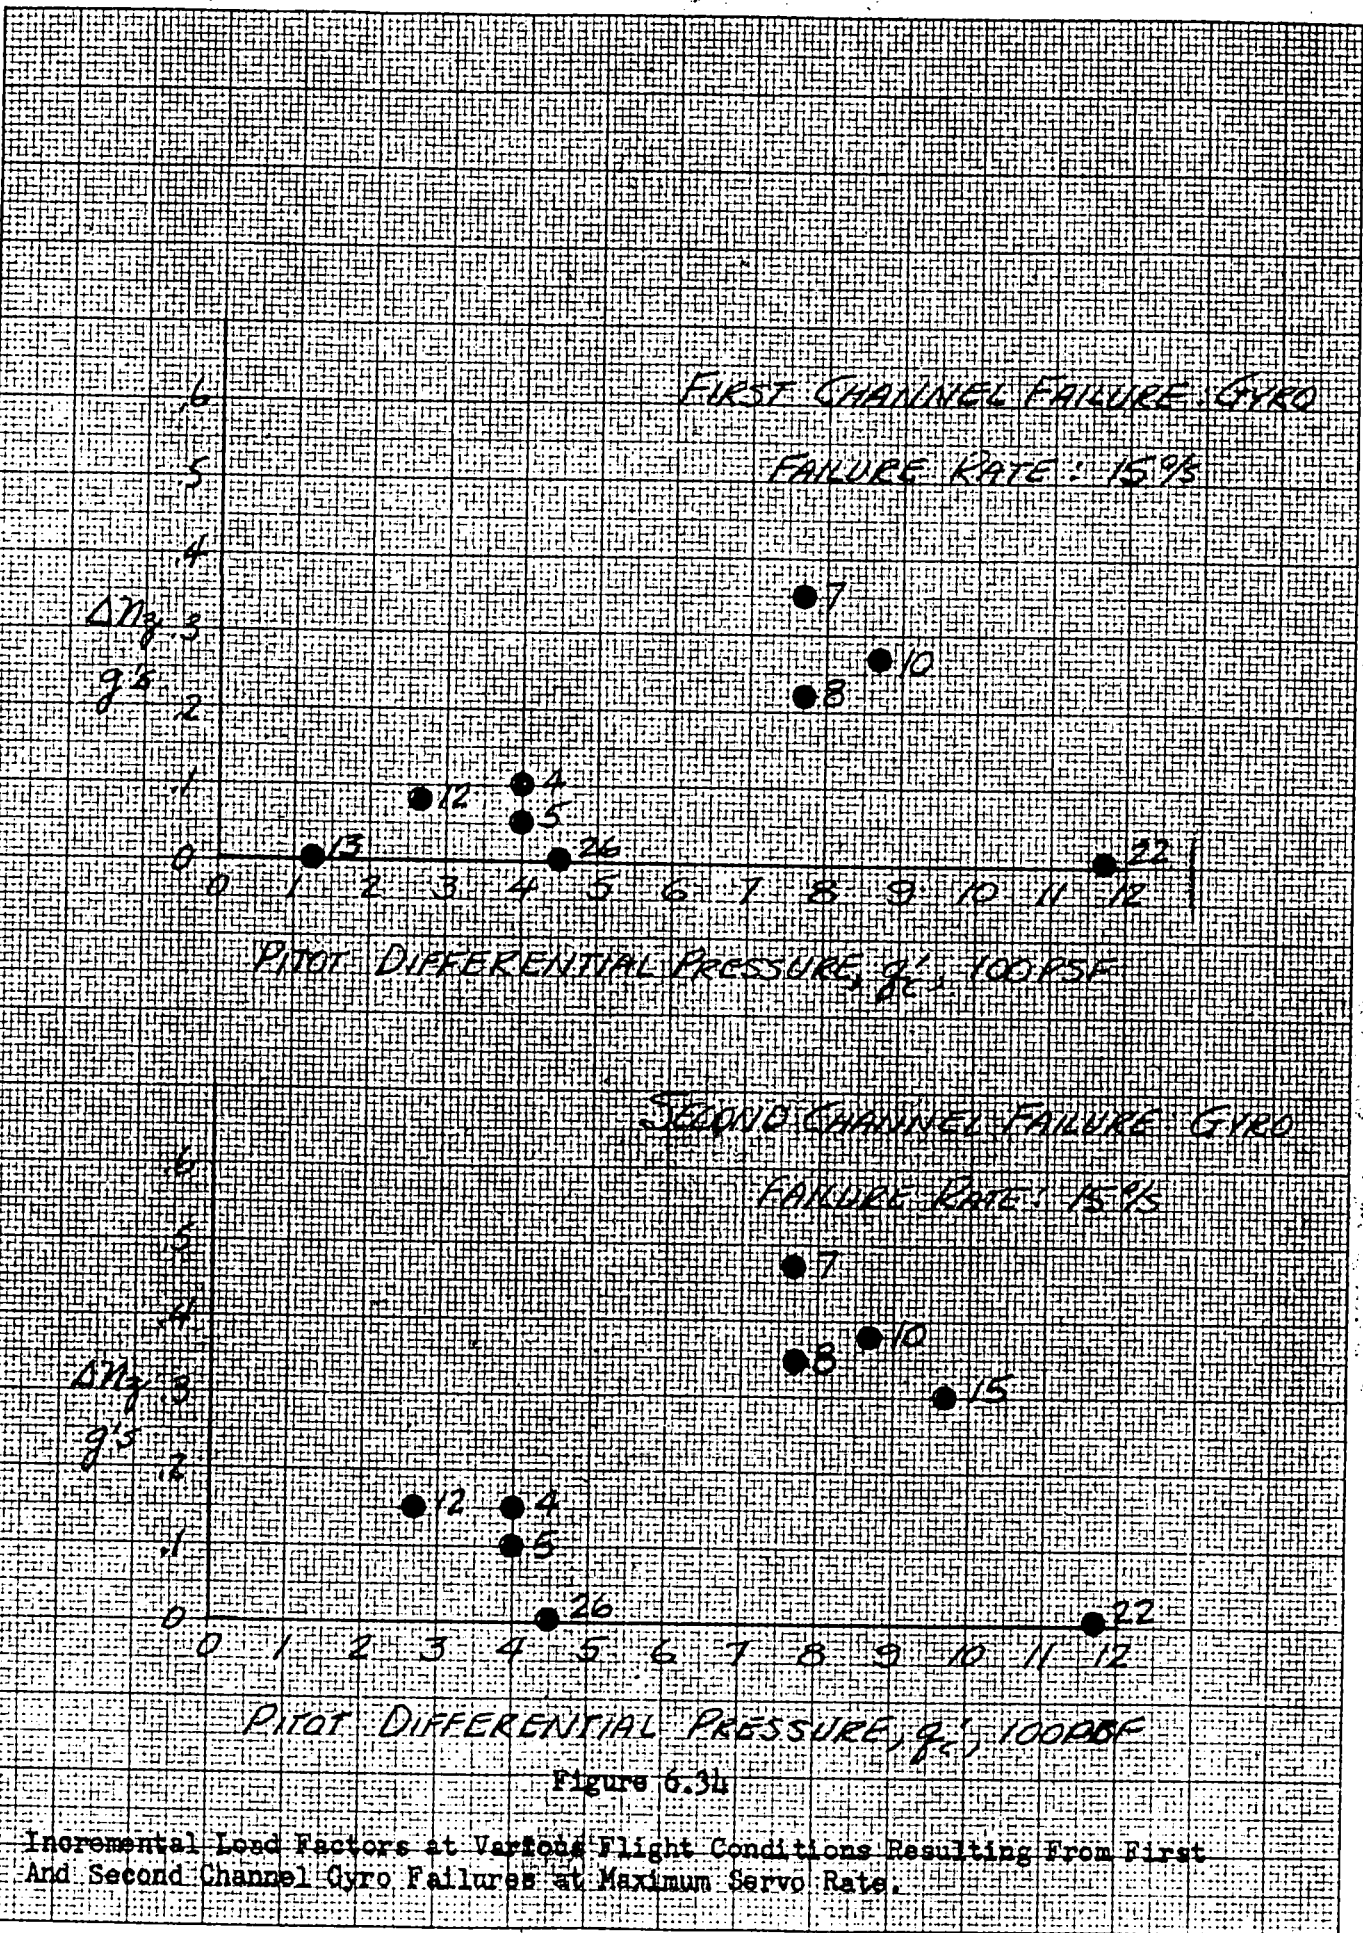 FIRST CHANNEL FAILURE: GYRO
FAILURE RATE: 15°/s
.6
.5
.4
Δnz .3
g's
.2
.1
0
7
10
8
4
12
5
13
26
22
0 1 2 3 4 5 6 7 8 9 10 11 12
PITOT DIFFERENTIAL PRESSURE, qc', 100 PSF
SECOND CHANNEL FAILURE: GYRO
FAILURE RATE: 15°/s
.6
.5
.4
Δnz .3
g's
.2
.1
0
7
10
8
15
12
4
5
26
22
0 1 2 3 4 5 6 7 8 9 10 11 12
PITOT DIFFERENTIAL PRESSURE, qc', 100 PSF
Figure 6.34
Incremental Load Factors at Various Flight Conditions Resulting From First
And Second Channel Gyro Failures at Maximum Servo Rate.